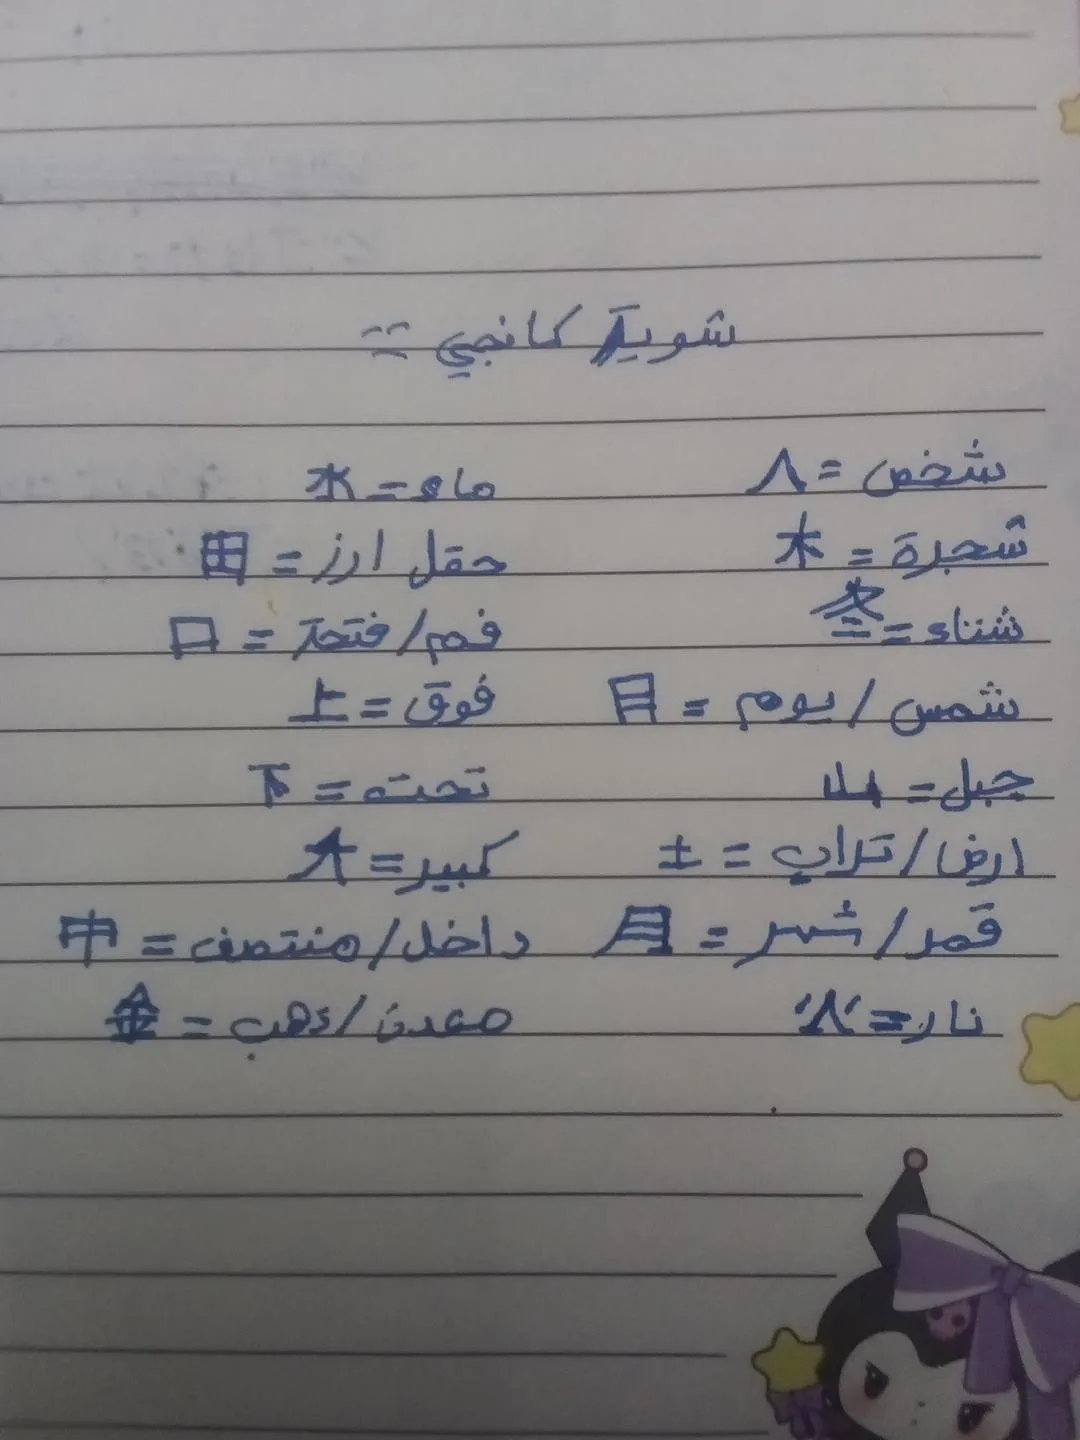 شوية كانجي :-
شخص = 人
ماء = 水
شجرة = 木
حقل ارز = 田
شتاء = 冬
فم/فتحة = 口
شمس/يوم = 日
فوق = 上
جبل = 山
تحت = 下
ارض/تراب = 土
كبير = 大
قمر/شهر = 月
داخل/منتصف = 中
نار = 火
معدن/ذهب = 金